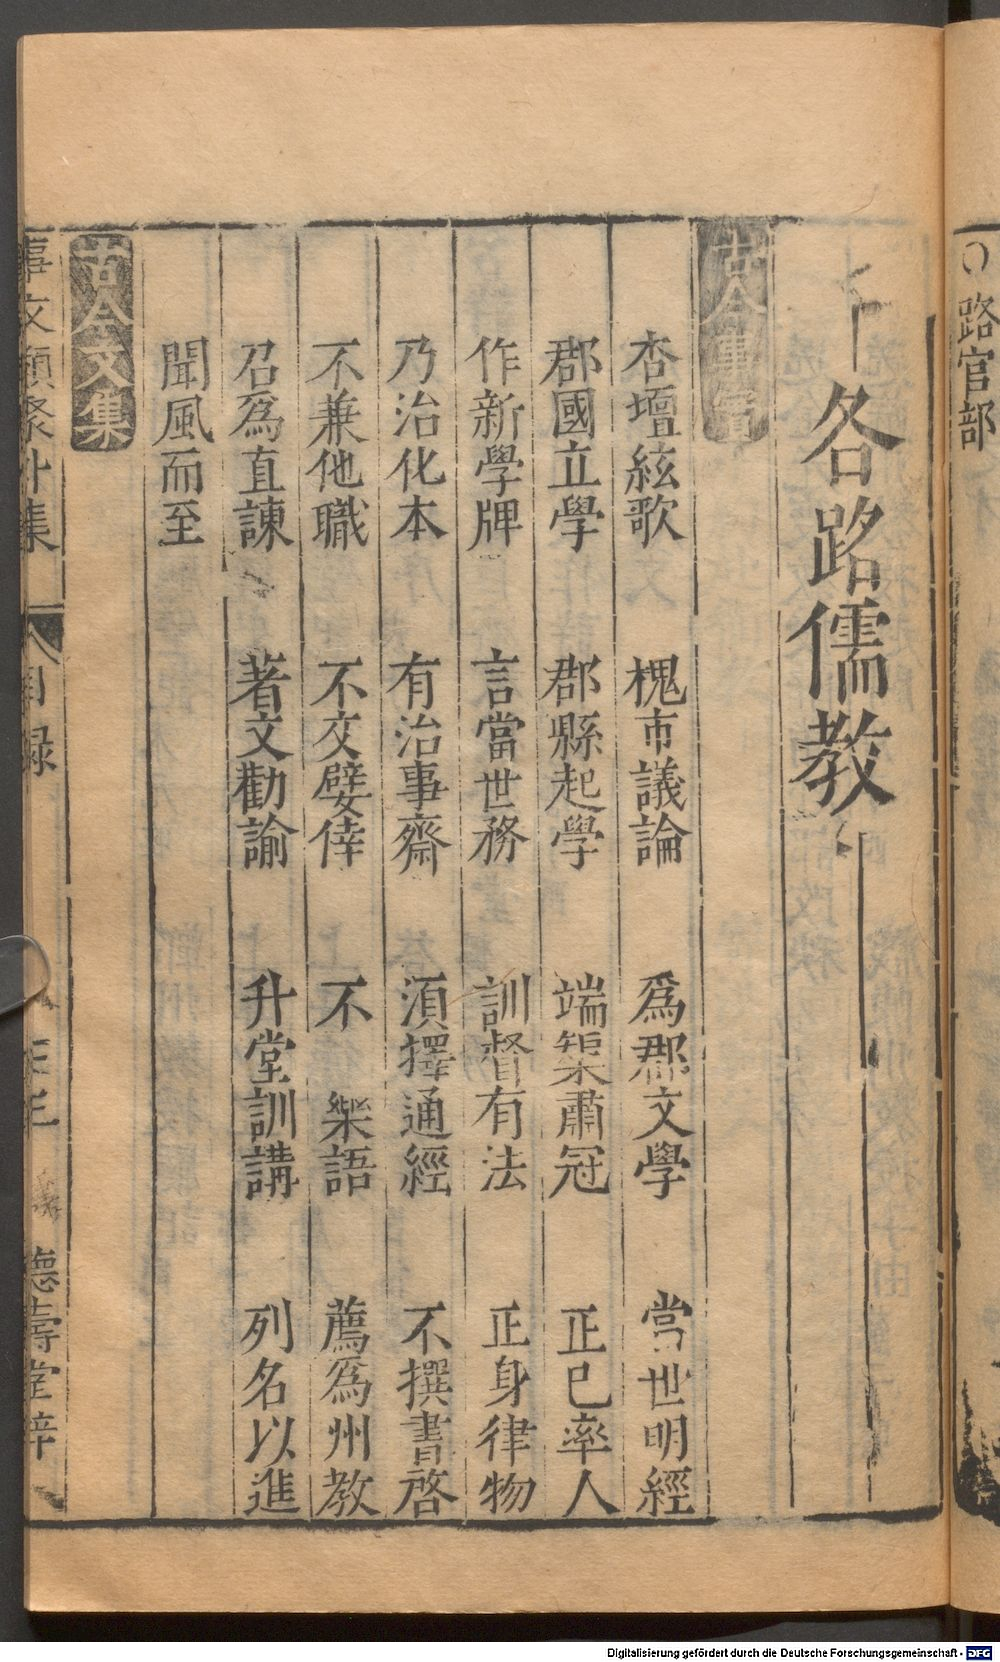 路官部
各路儒教
古今事實
杏壇絃歌 槐市議論 爲郡文學 當世明經
郡國立學 郡縣起學 端榘肅冠 正已率人
作新學牌 言當世務 訓督有法 正身律物
乃治化本 有治事齋 湏擇通經 不撰書啓
不兼他職 不交嬖倖 不 樂語 薦爲州教
召爲直諫 著文勸諭 升堂訓講 列名以進
聞風而至
古今文集
事文類聚外集 目録 德壽堂梓
Digitalisierung gefördert durch die Deutsche Forschungsgemeinschaft - DFG